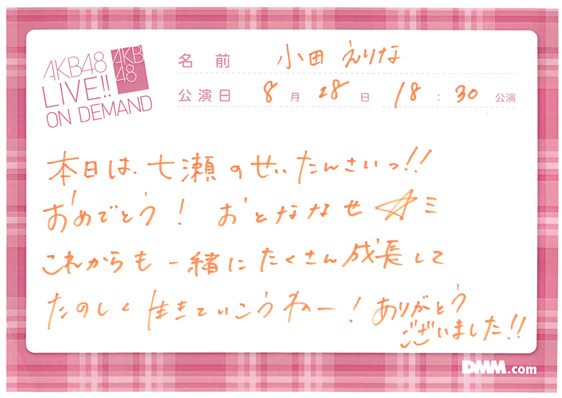 AKB48
LIVE!!
ON DEMAND
AKB
48
名前 小田えりな
公演日 8月28日 18:30公演
本日は、七瀬のせいたんさいっ!!
おめでとう! おとなななせ☆ミ
これからも一緒にたくさん成長して
たのしく生きていこうねー! ありがとう
ございました!!
DMM.com